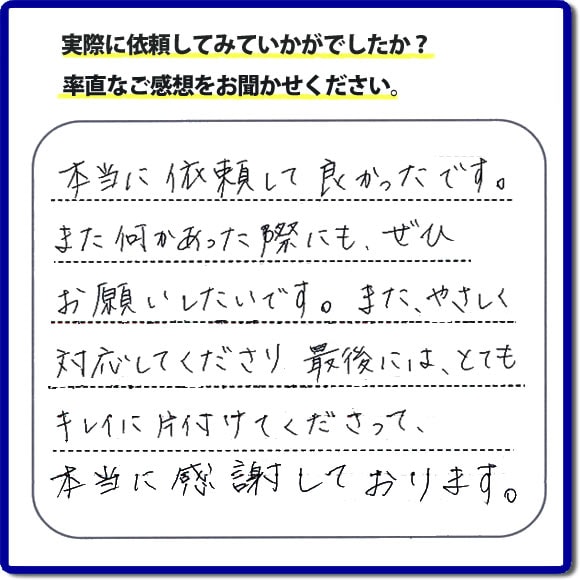 実際に依頼してみていかがでしたか？
率直なご感想をお聞かせください。
本当に依頼して良かったです。
また何かあった際にも、ぜひ
お願いしたいです。また、やさしく
対応してくださり最後には、とても
キレイに片付けてくださって、
本当に感謝しております。